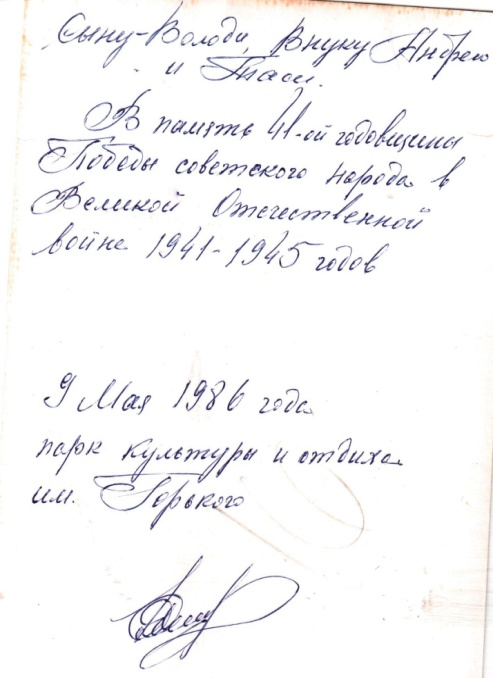 Сыну-Володи, Внуку Андрею
и Таси.
В память 41-ой годовщины
Победы советского народа в
Великой Отечественной
войне 1941-1945 годов
9 Мая 1986 года
парк культуры и отдыха
им. Горького